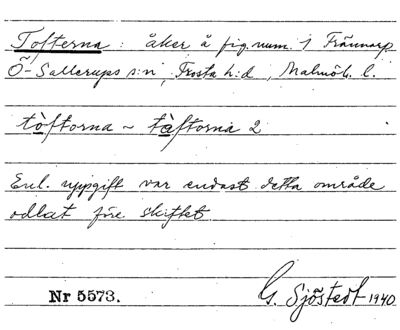 Tofterna: åker å fig.num. 1 Frännarp
Ö-Sallerups s:n, Frosta h:d, Malmöh. l.
tòftorna ~ tàftorna 2
Enl. uppgift var endast detta område
odlat före skiftet.
Nr 5573.
G. Sjöstedt 1940